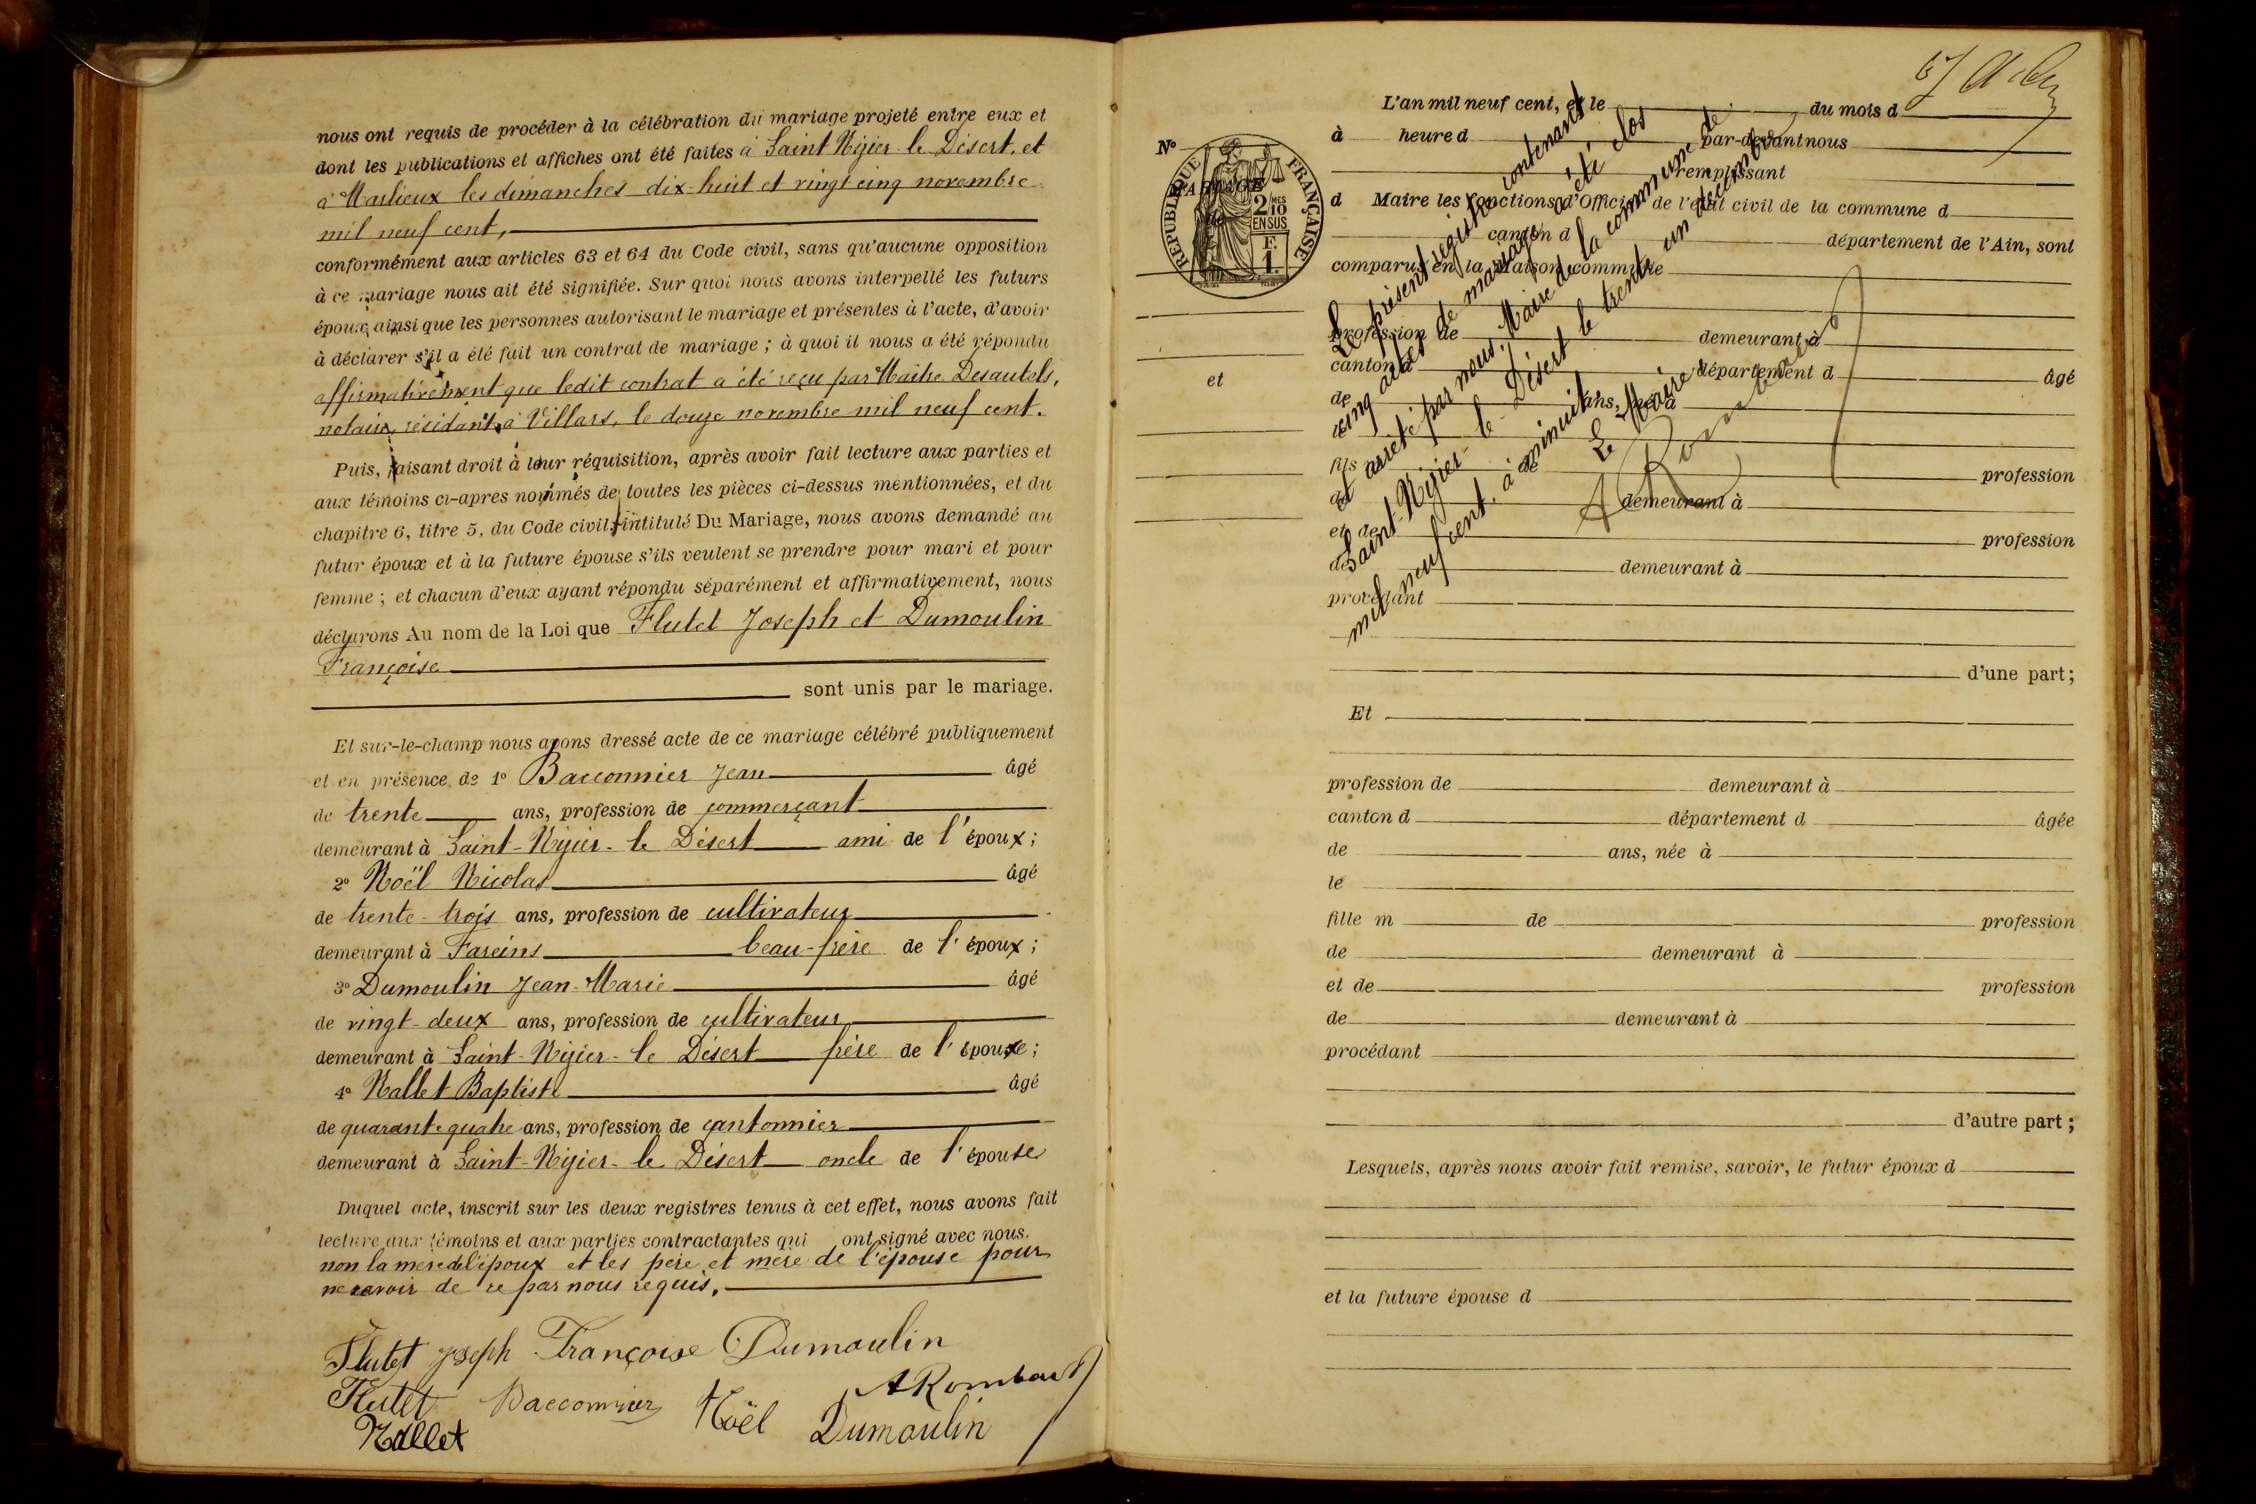 nous ont requis de procéder à la célébration du mariage projeté entre eux et
dont les publications et affiches ont été faites à Saint Nizier-le Désert, et
à Marlieux les dimanches dix-huit et vingt cinq novembre
mil neuf cent,
conformément aux articles 63 et 64 du Code civil, sans qu'aucune opposition
à ce mariage nous ait été signifiée. Sur quoi nous avons interpellé les futurs
époux, ainsi que les personnes autorisant le mariage et présentes à l'acte, d'avoir
à déclarer s'il a été fait un contrat de mariage ; à quoi il nous a été répondu
affirmativement que ledit contrat a été reçu par Maître Desautels,
notaire, résidant à Villars, le douze novembre mil neuf cent.
Puis, faisant droit à leur réquisition, après avoir fait lecture aux parties et
aux témoins ci-apres nommés de toutes les pièces ci-dessus mentionnées, et du
chapitre 6, titre 5, du Code civil, intitulé Du Mariage, nous avons demandé au
futur époux et à la future épouse s'ils veulent se prendre pour mari et pour
femme ; et chacun d'eux ayant répondu séparément et affirmativement, nous
déclarons Au nom de la Loi que Flutet Joseph et Dumoulin
Françoise
sont unis par le mariage.
Et sur-le-champ nous avons dressé acte de ce mariage célébré publiquement
et en présence de 1° Bacconnier Jean âgé
de trente ans, profession de commerçant
demeurant à Saint-Nizier-le Désert ami de l'époux ;
2° Noël Nicolas âgé
de trente-trois ans, profession de cultivateur
demeurant à Fareins beau-frère de l'époux ;
3° Dumoulin Jean-Marie âgé
de vingt-deux ans, profession de cultivateur
demeurant à Saint-Nizier-le Désert frère de l'épouse ;
4° Nallet Baptiste âgé
de quarante quatre ans, profession de cantonnier
demeurant à Saint-Nizier-le Désert oncle de l'épouse
Duquel acte, inscrit sur les deux registres tenus à cet effet, nous avons fait
lecture aux témoins et aux parties contractantes qui ont signé avec nous.
non la mère de l'époux et les père et mère de l'épouse pour
ne savoir de ce par nous requis.
Flutet Joseph Françoise Dumoulin
Flutet Bacconnier Noël Dumoulin ARombaud
Nallet
L'an mil neuf cent, et le du mois d
à heure d par-devant nous
remplissant
d Maire les fonctions d'Officier de l'état civil de la commune d
canton d département de l'Ain, sont
comparus en la Maison commune
profession de demeurant à
canton d département d âgé
de ans, né à
le
fils de profession
de demeurant à
et de profession
de demeurant à
procédant
d'une part ;
Et
profession de demeurant à
canton d département d âgée
de ans, née à
le
fille m de profession
de demeurant à
et de profession
de demeurant à
procédant
d'autre part ;
Lesquels, après nous avoir fait remise, savoir, le futur époux d
et la future épouse d
N°
MARIAGE
de
et
RÉPUBLIQUE FRANÇAISE
2/10 MES
EN SUS
F.
1.
Le présent registre contenant
cinq actes de mariage a été clos
et arrêté par nous, Maire de la commune de
Saint-Nizier-le-Désert le trente un décembre
mil neuf cent, à minuit.
Le Maire